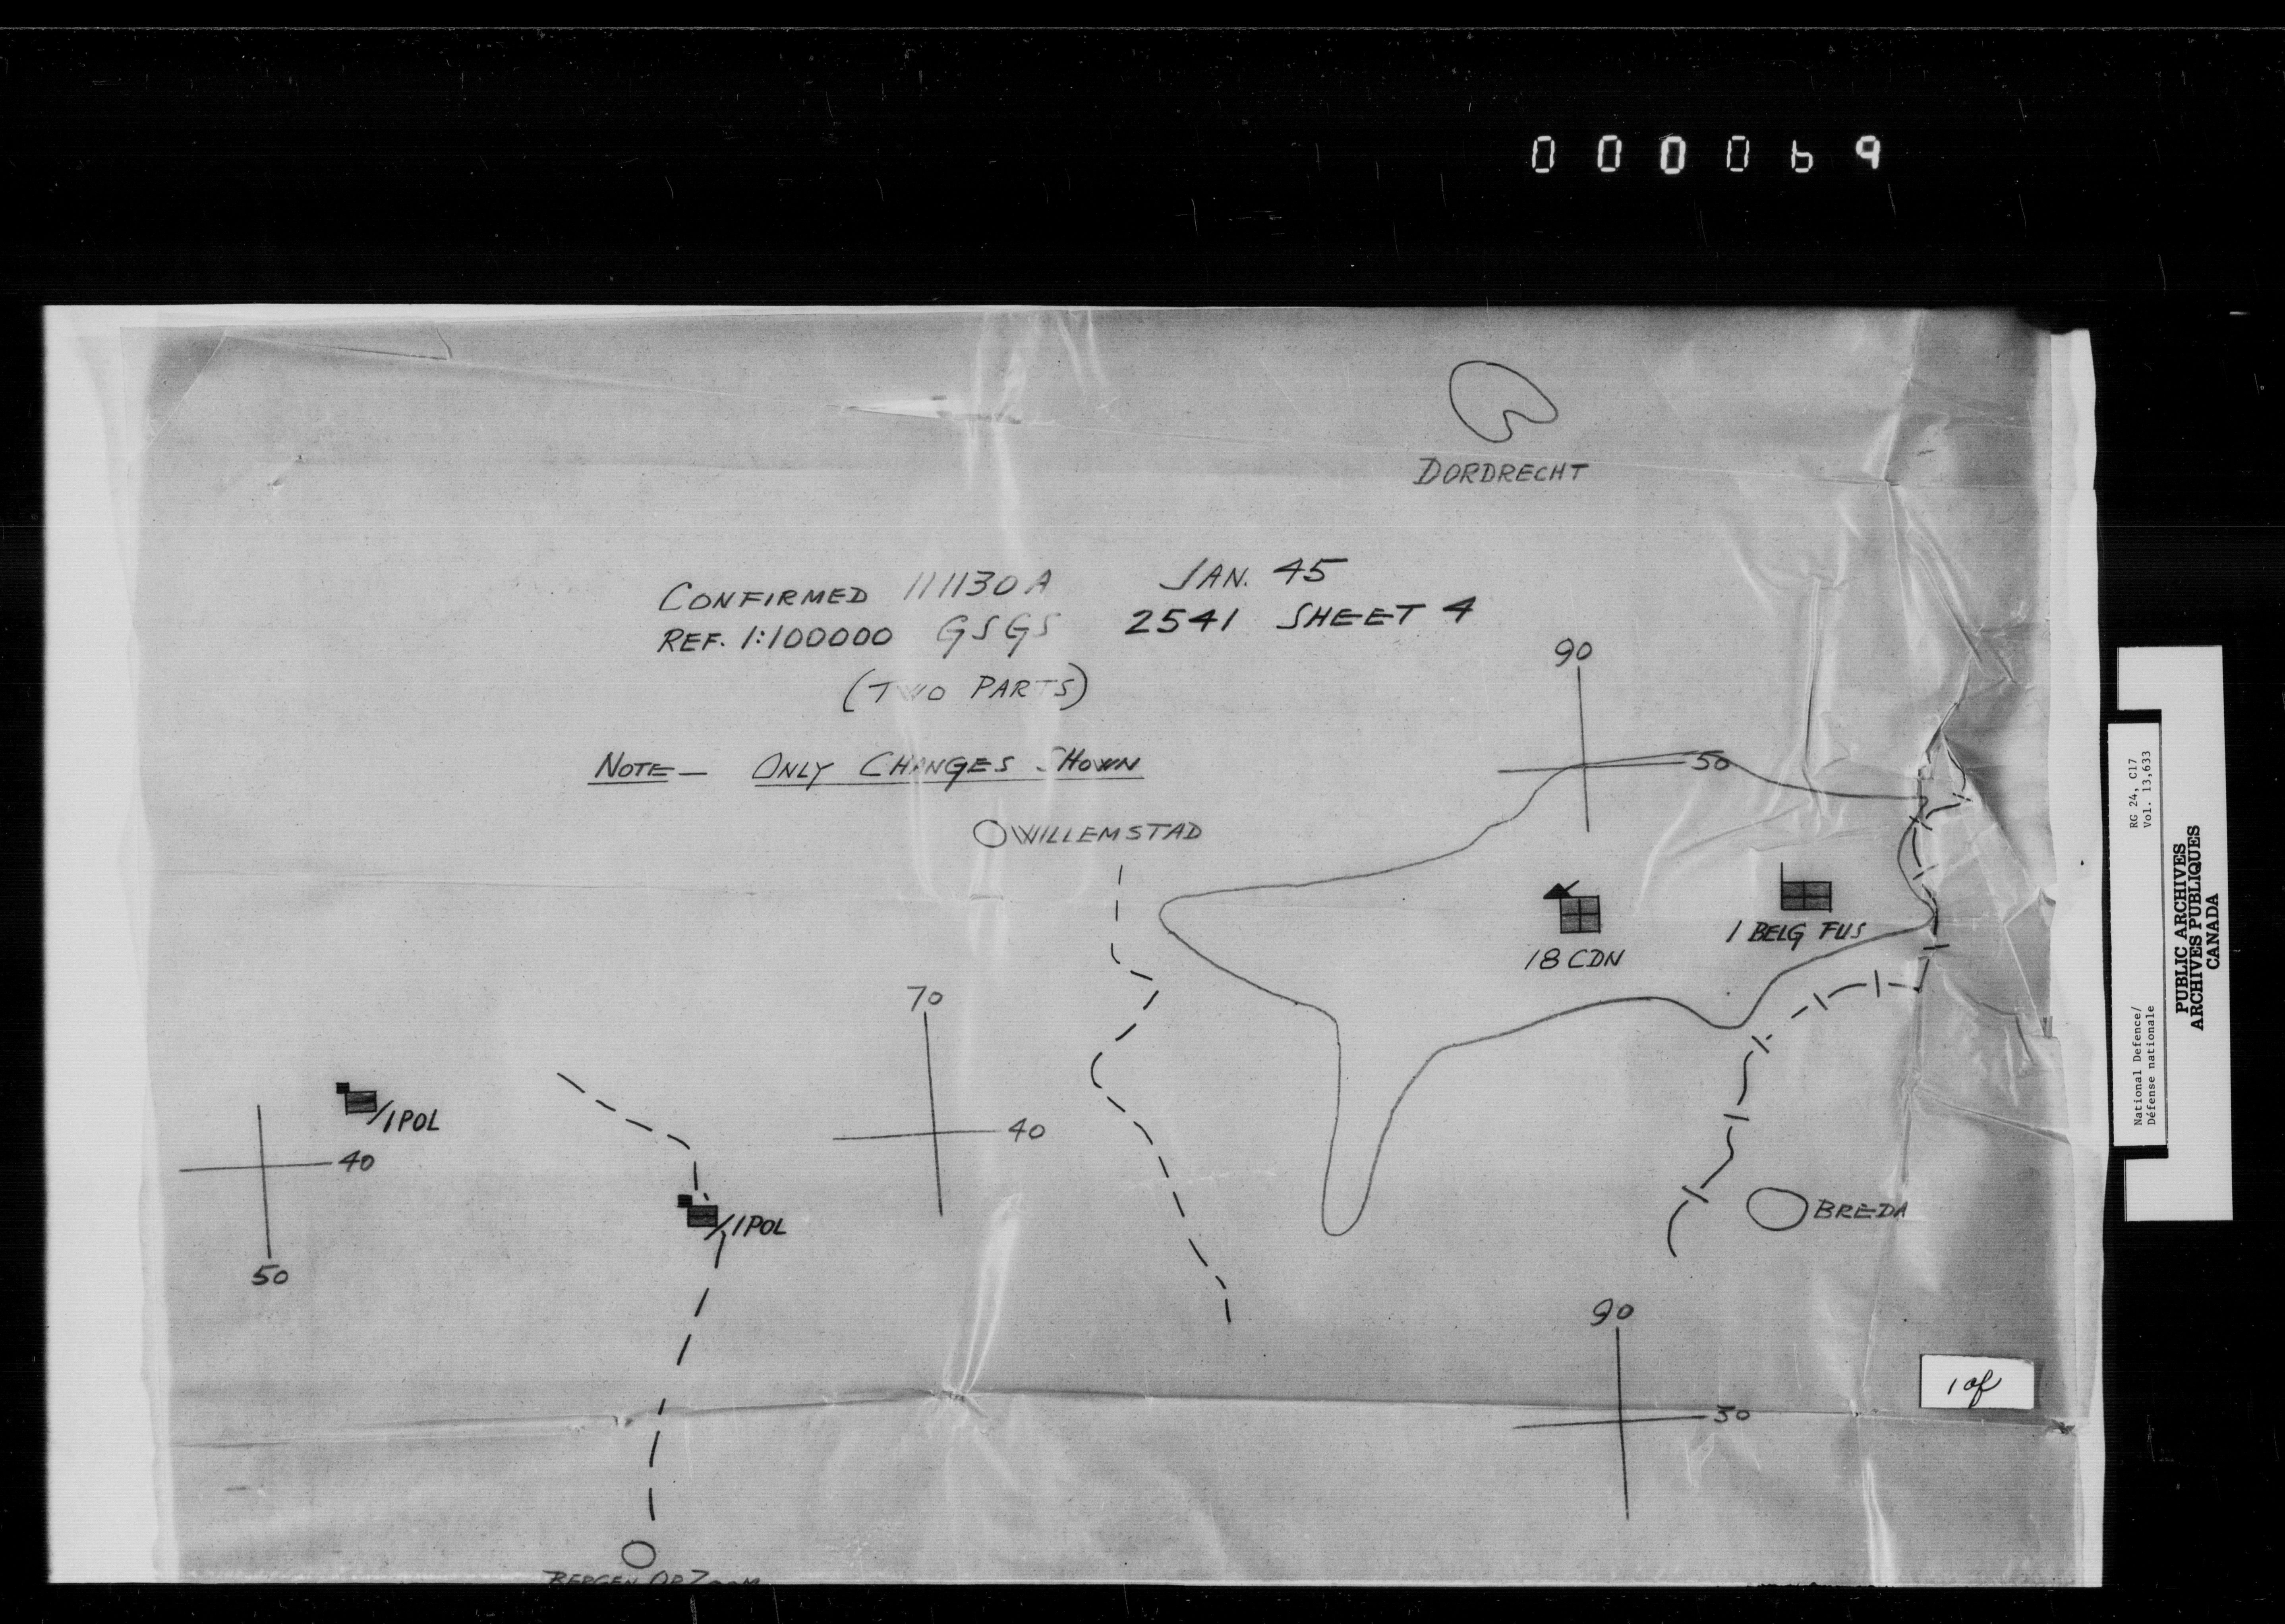 000069
DORDRECHT
CONFIRMED 111130A JAN. 45
REF. 1:100000 GSGS 2541 SHEET 4
(TWO PARTS)
NOTE — ONLY CHANGES SHOWN
90
50
WILLEMSTAD
18 CDN
1 BELG FUS
70
40
/1 POL
40
50
/1 POL
BREDA
90
30
1 of
BERGEN OP ZOOM
RG 24, C17
Vol. 13,633
National Defence/
Défense nationale
PUBLIC ARCHIVES
ARCHIVES PUBLIQUES
CANADA